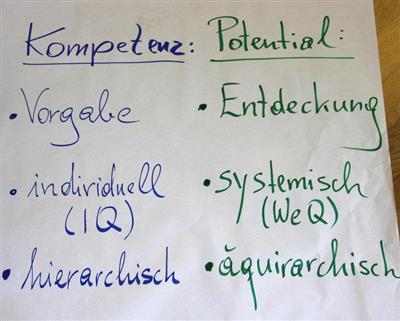 Kompetenz: Potential:
• Vorgabe • Entdeckung
• individuell • systemisch
(IQ) (WeQ)
• hierarchisch • äquirarchisch